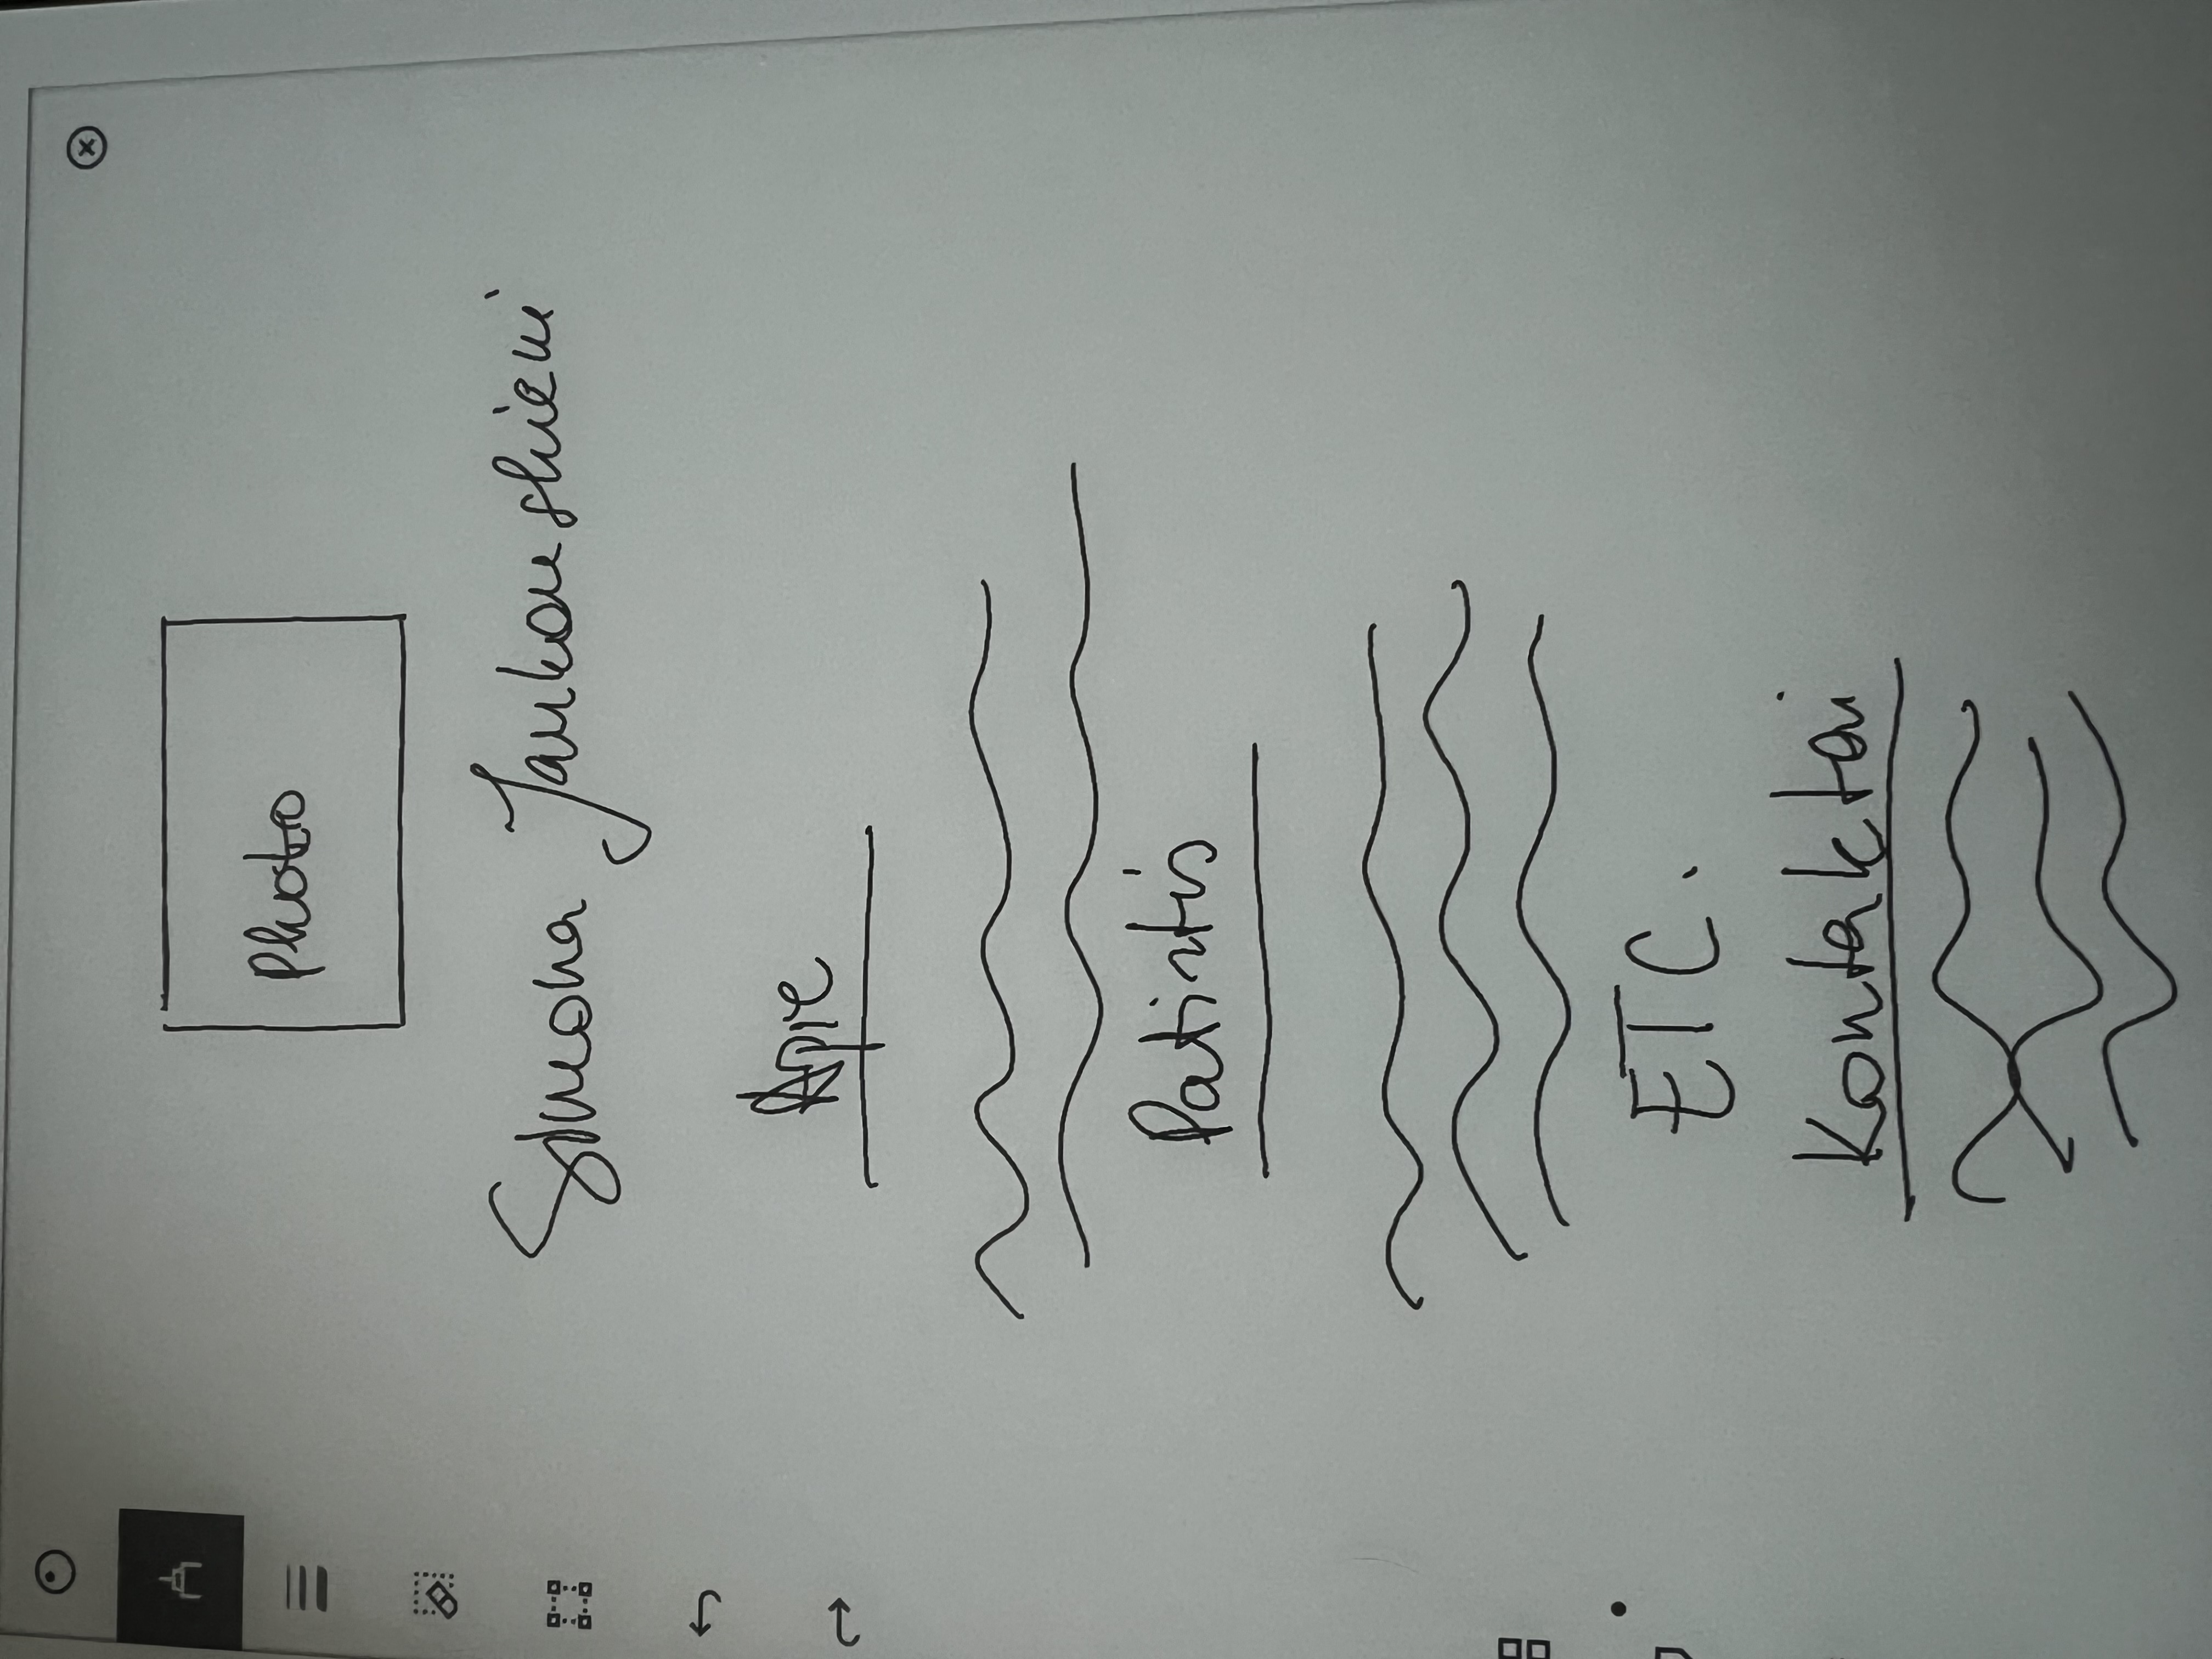 Photo
Simona Jankauskienė
Apie
Patirtis
ETC.
Kontaktai